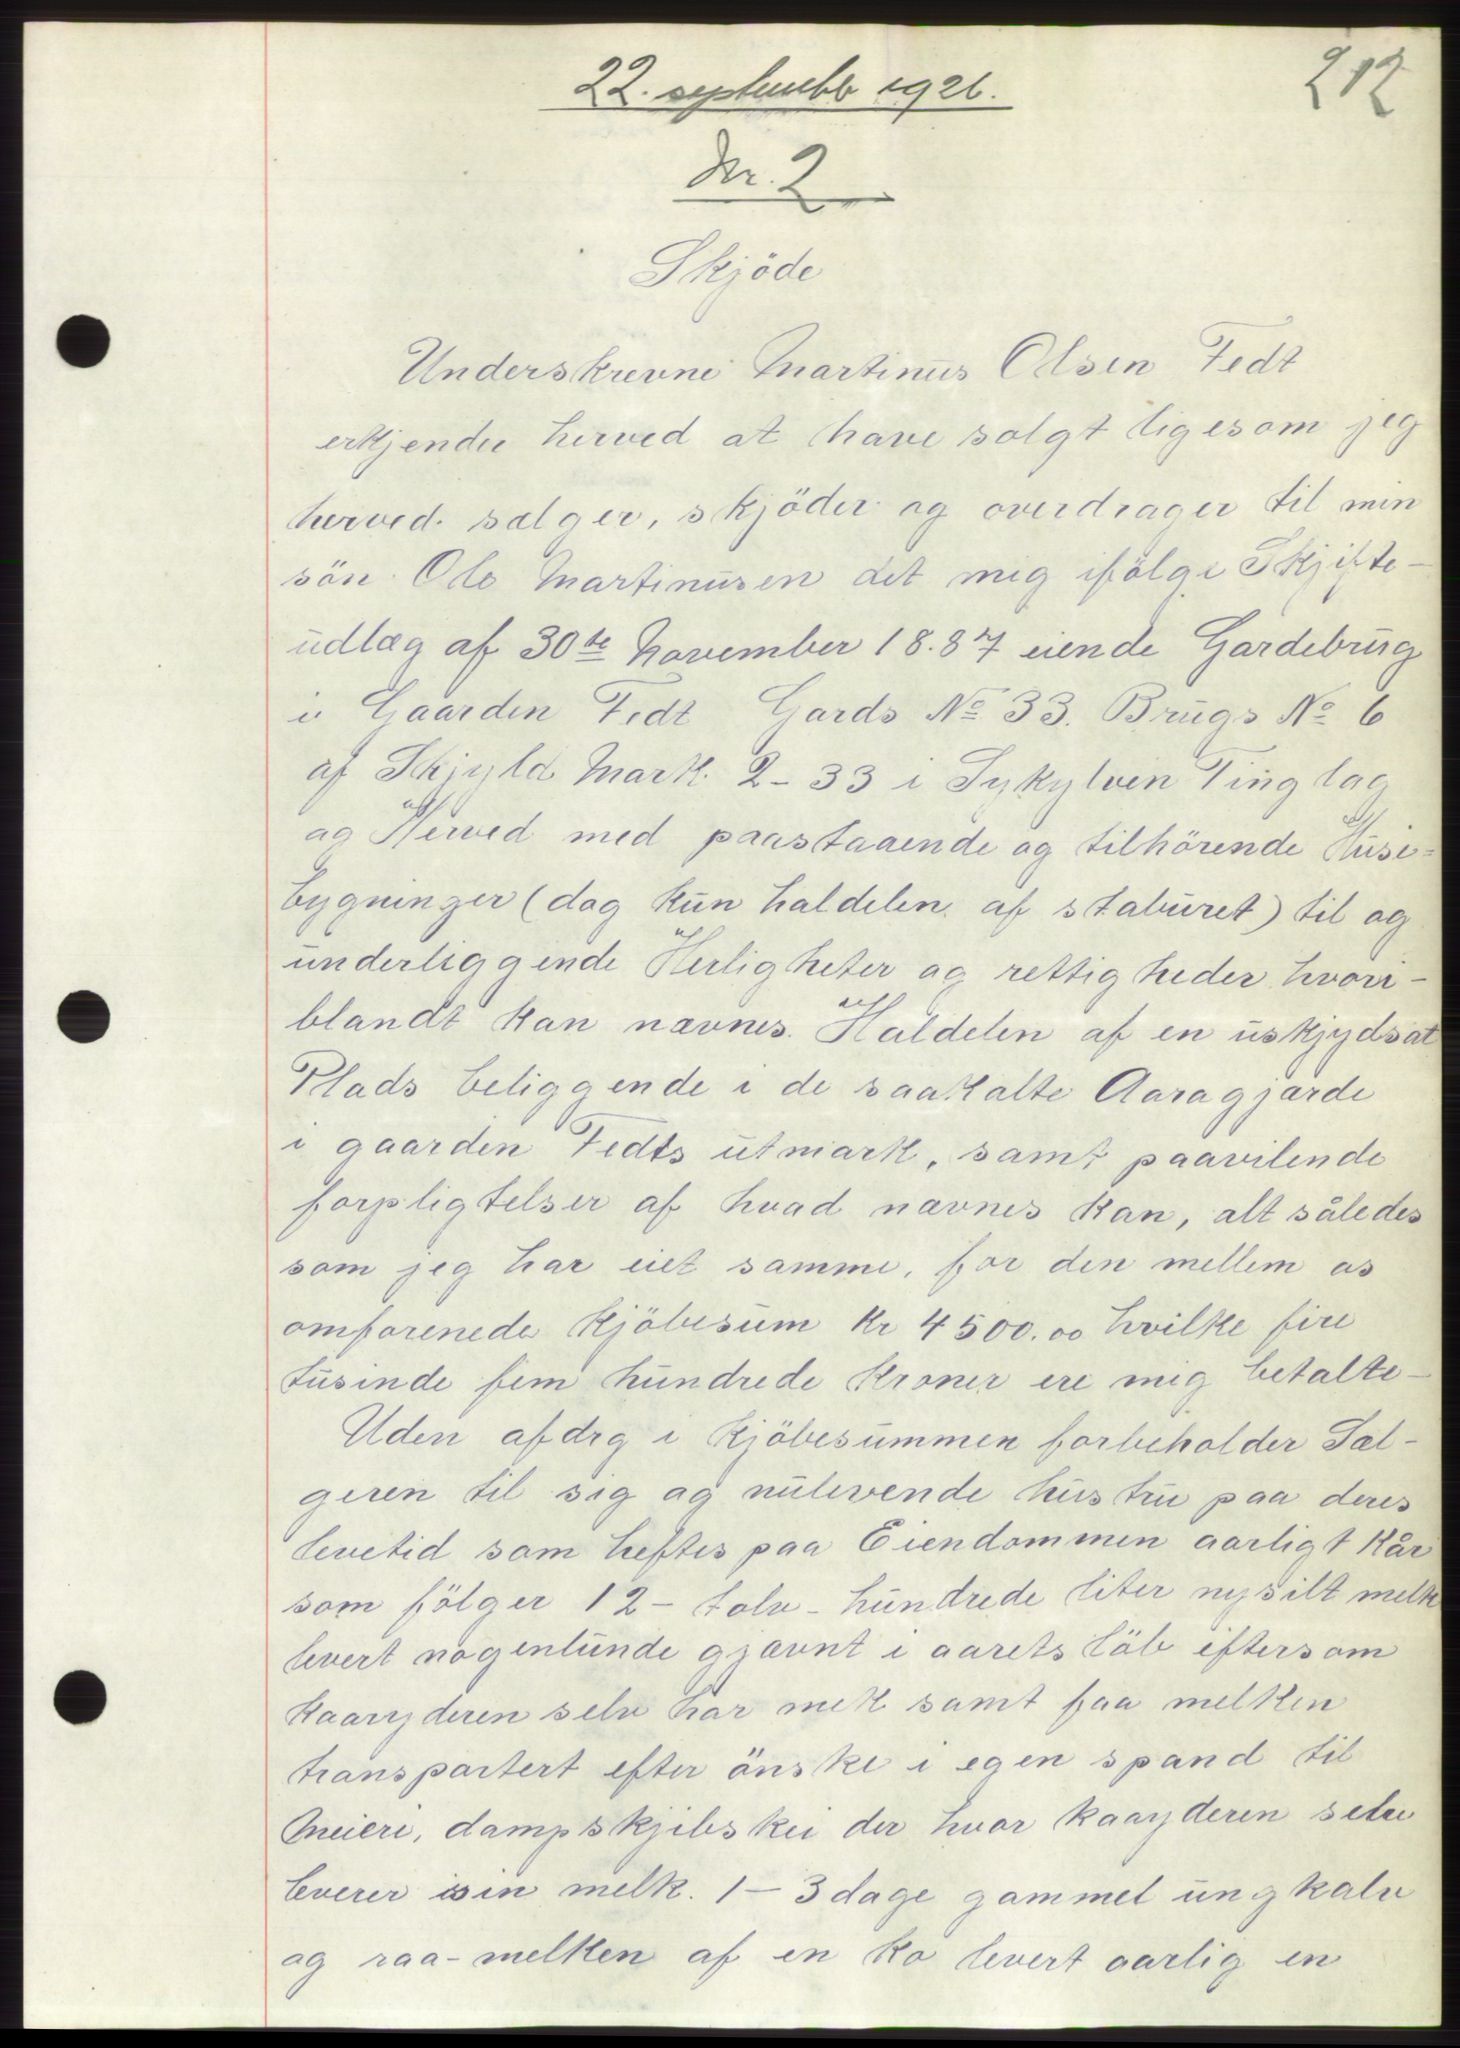 22. september 1926.
212
Nr. 2
Skjöde
Underskrevne Martinus Olsen Fedt
erkjender herved at have solgt ligesom jeg
herved sælger, skjöder og overdrager til min
sön Ole Martinusen det mig ifölge Skjifte-
udlæg af 30te November 18.87 eiende Gardebrug
i Gaarden Fedt Gards No 33. Brugs No 6
af Skjyld Mark. 2-33 i Sykylven Tinglag
og Herved med paastaaende og tilhörende Huse=
bygninger (dog kun haldelen af staburet) til og
underliggende Herligheter og rettigheder hvori-
blandt kan nævnes. Haldelen af en uskjydsat
Plads beliggende i de saakalte Aaragjærde
i gaarden Fedts utmark, samt paavilende
forpligtelser af hvad nævnes kan, alt således
som jeg har eiet samme, for den mellem os
omforenede kjöbesum Kr 4500.00 hvilke fire
tusinde fem hundrede kroner ere mig betalte-
Uden afdrg i kjöbesummen forbeholder Sæl-
geren til sig og nulevende hustru paa deres
levetid som heftes paa Eiendommen aarligt kår
som fölger 12- tolv- hundrede liter nysilt melk
levert nogenlunde gjævnt i aarets löb eftersom
kaaryderen selv har melk samt faa melken
transportert efter önske i egen spand til
Meieri, dampskjibskei der hvor kaaryderen selv
leverer sin melk. 1-3 dage gammel ungkalv
og raa-melken af en ko levert aarlig en